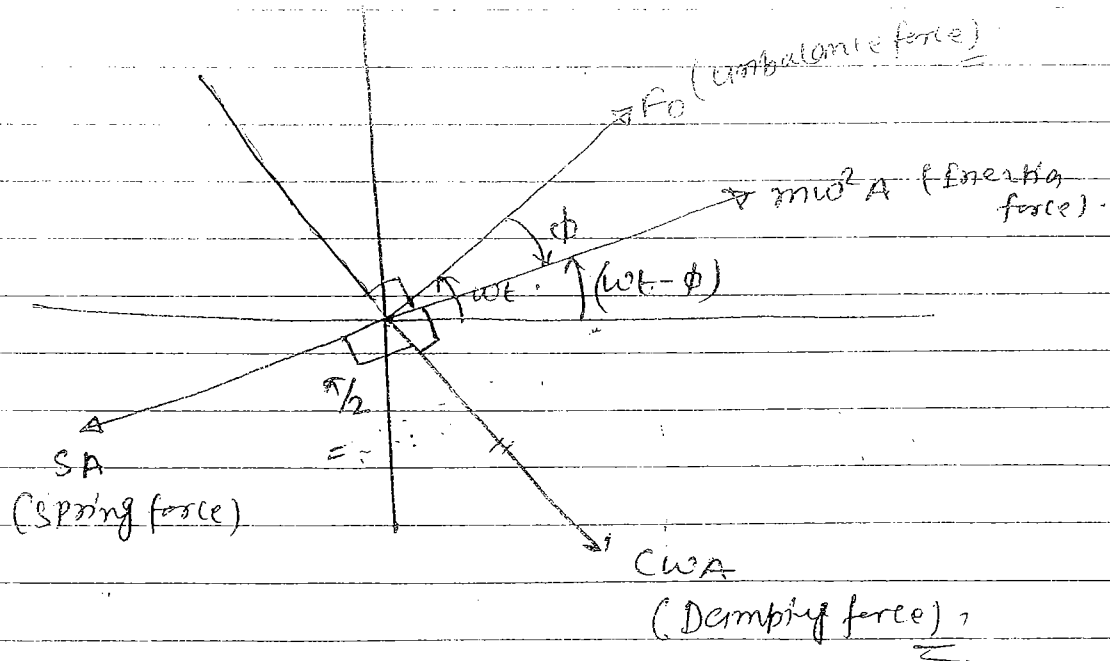 F0 (unbalance force)
mω²A (Inertia
force).
ϕ
ωt.
(ωt-ϕ)
π/2
SA
(Spring force)
CωA
(Damping force),